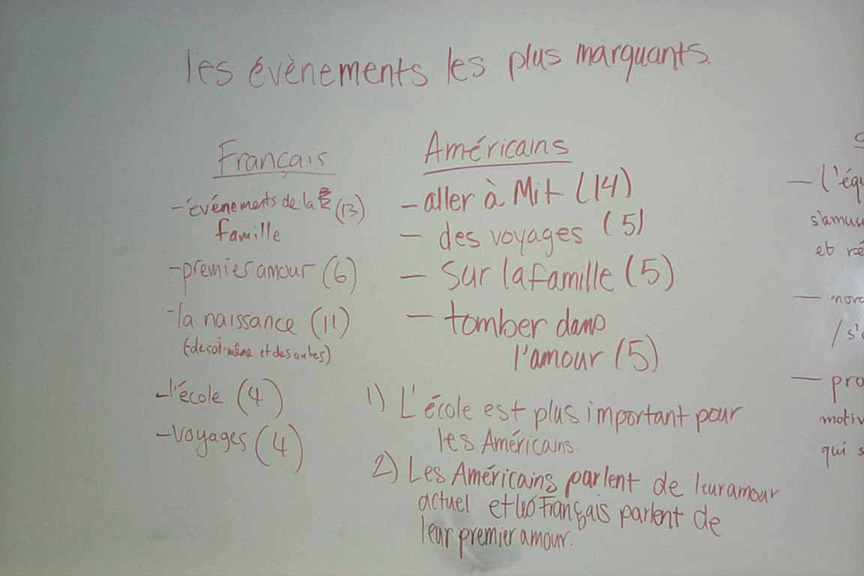 les évènements les plus marquants.
Français
-événements de la (13)
famille
-premier amour (6)
-la naissance (11)
(-de soi-même et des autres)
-l'école (4)
-voyages (4)
Américains
-aller à Mit (14)
- des voyages (5)
- Sur la famille (5)
- tomber dans
l'amour (5)
1) L'école est plus important pour
les Américains.
2) Les Américains parlent de leur amour
actuel et les Français parlent de
leur premier amour.
- l'équ
s'amus
et ré
- nord
/s'
- pro
motiv
qui s